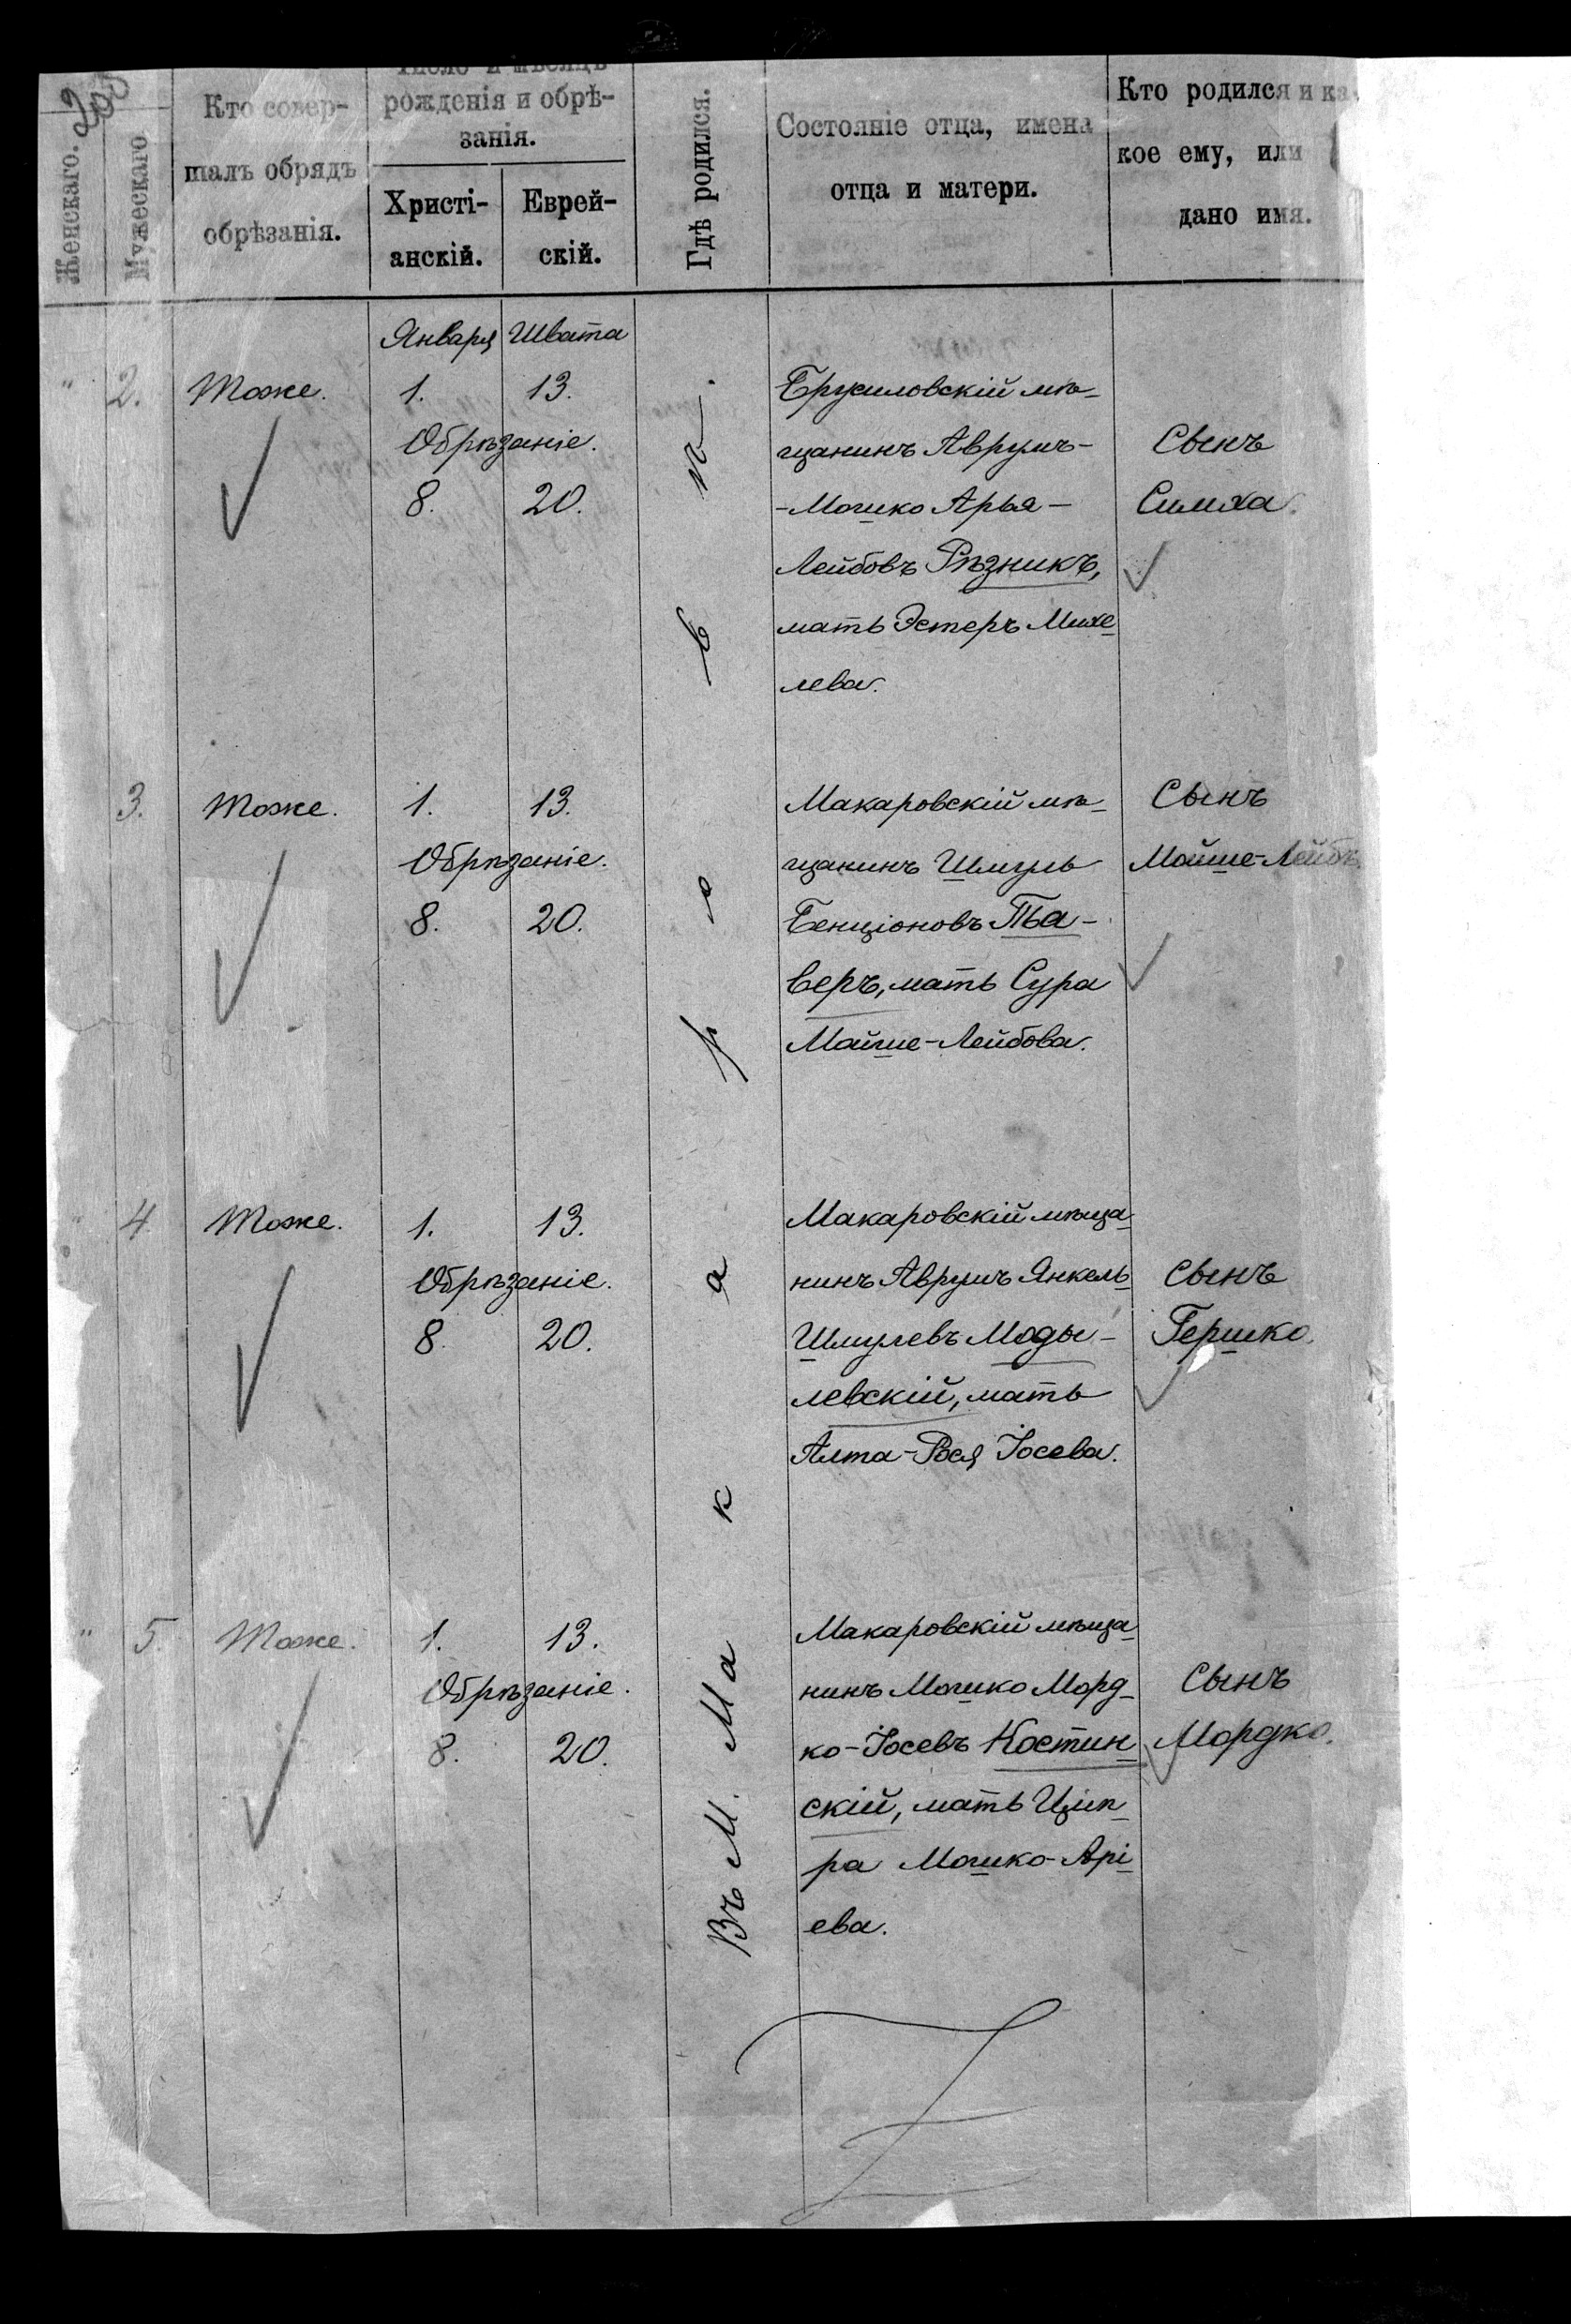 Женскаго.
Мужескаго
Кто совер-
шалъ обрядъ
обрѣзанія.
Число и мѣсяцъ
рожденія и обрѣ-
занія.
Христі-
анскій.
Еврей-
скій.
Гдѣ родился.
Состояніе отца, имена
отца и матери.
Кто родился и ка-
кое ему, или
дано имя.
Января Швата
Въ М. Макаровѣ.
" 2. Тоже. 1. 13.
Обрѣзаніе.
8. 20.
Брусиловскій мѣ-
щанинъ Аврумъ-
-Мошко Арья-
Лейбовъ Рѣзникъ,
мать Эстеръ Михе-
лева.
Сынъ
Симха.
3. Тоже. 1. 13.
Обрѣзаніе.
8. 20.
Макаровскій мѣ-
щанинъ Шмуль
Бенціоновъ Тва-
веръ, мать Сура
Майше-Лейбова.
Сынъ
Майше-Лейбъ
" 4. Тоже. 1. 13.
Обрѣзаніе.
8. 20.
Макаровскій мѣща-
нинъ Аврумъ Янкель-
Шмулевъ Моды-
левскій, мать
Алта-Рося Іосева.
Сынъ
Гершко.
" 5. Тоже. 1. 13.
Обрѣзаніе.
8. 20.
Макаровскій мѣща-
нинъ Мошко Морд-
ко-Іосевъ Костин-
скій, мать Цип-
ра Мошко-Арі-
ева.
Сынъ
Мордко.